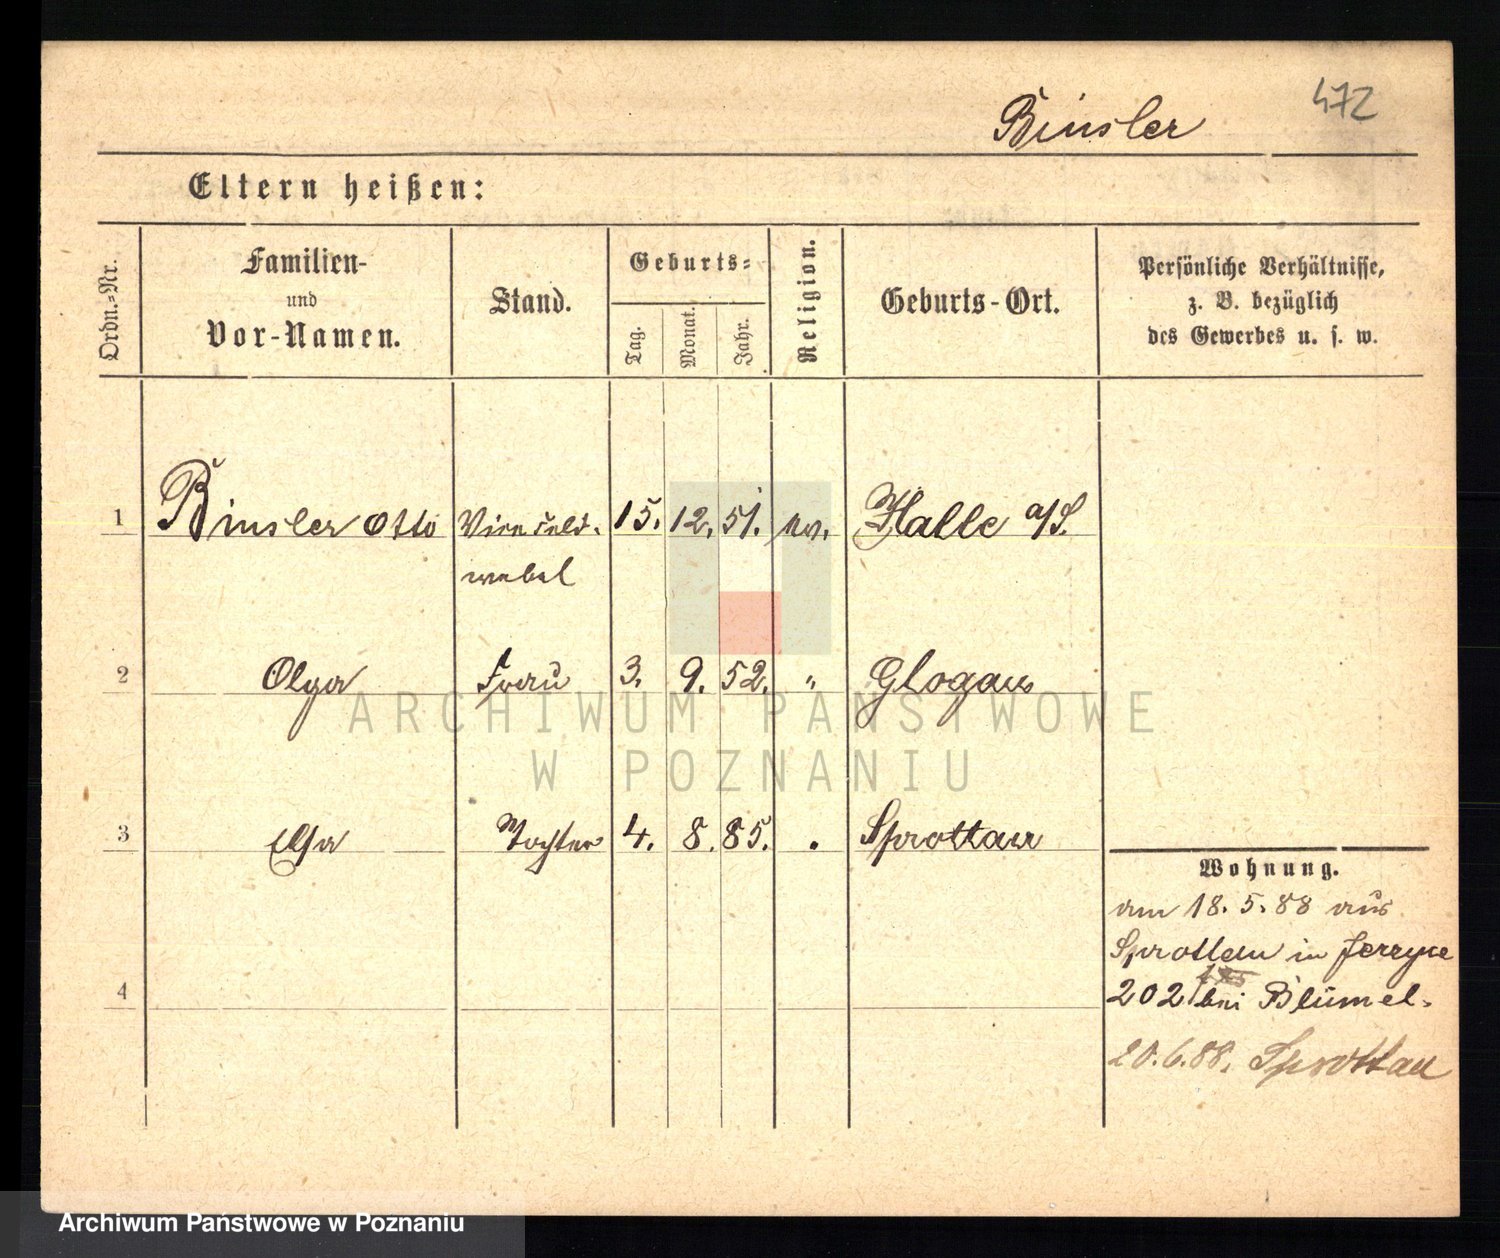 472
Binsler
Eltern heißen:
Ordn.=Nr.
Familien-
und
Vor-Namen.
Stand.
Geburts=
Tag.
Monat.
Jahr.
Religion.
Geburts-Ort.
Persönliche Verhältnisse,
z. B. bezüglich
des Gewerbes u. s. w.
1 Binsler Otto Vicefeld- 15. 12. 51. ev. Halle a/S.
webel
2 Olga Frau 3. 9. 52. " Glogau
3 Elsa Tochter 4. 8. 85. " Sprottau
4
Wohnung.
am 18. 5. 88 aus
Sprottau in Jerzyce
202 bei Blümel.
20. 6. 88. Sprottau
ARCHIWUM PAŃSTWOWE
W POZNANIU
Archiwum Państwowe w Poznaniu